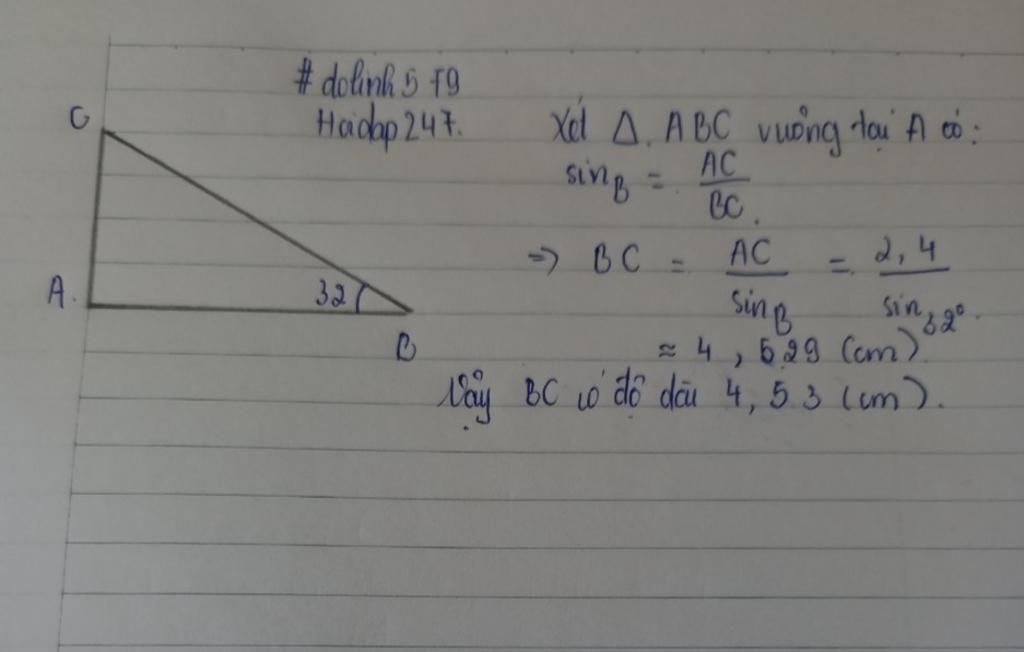 # dolinh579
Hoidap247.
C
A.
32
B
Xét Δ. ABC vuông tại A có:
sin B = AC / BC.
=> BC = AC / sin B = 2,4 / sin 32°.
≈ 4,529 (cm)
Vậy BC có độ dài 4,53 (cm).